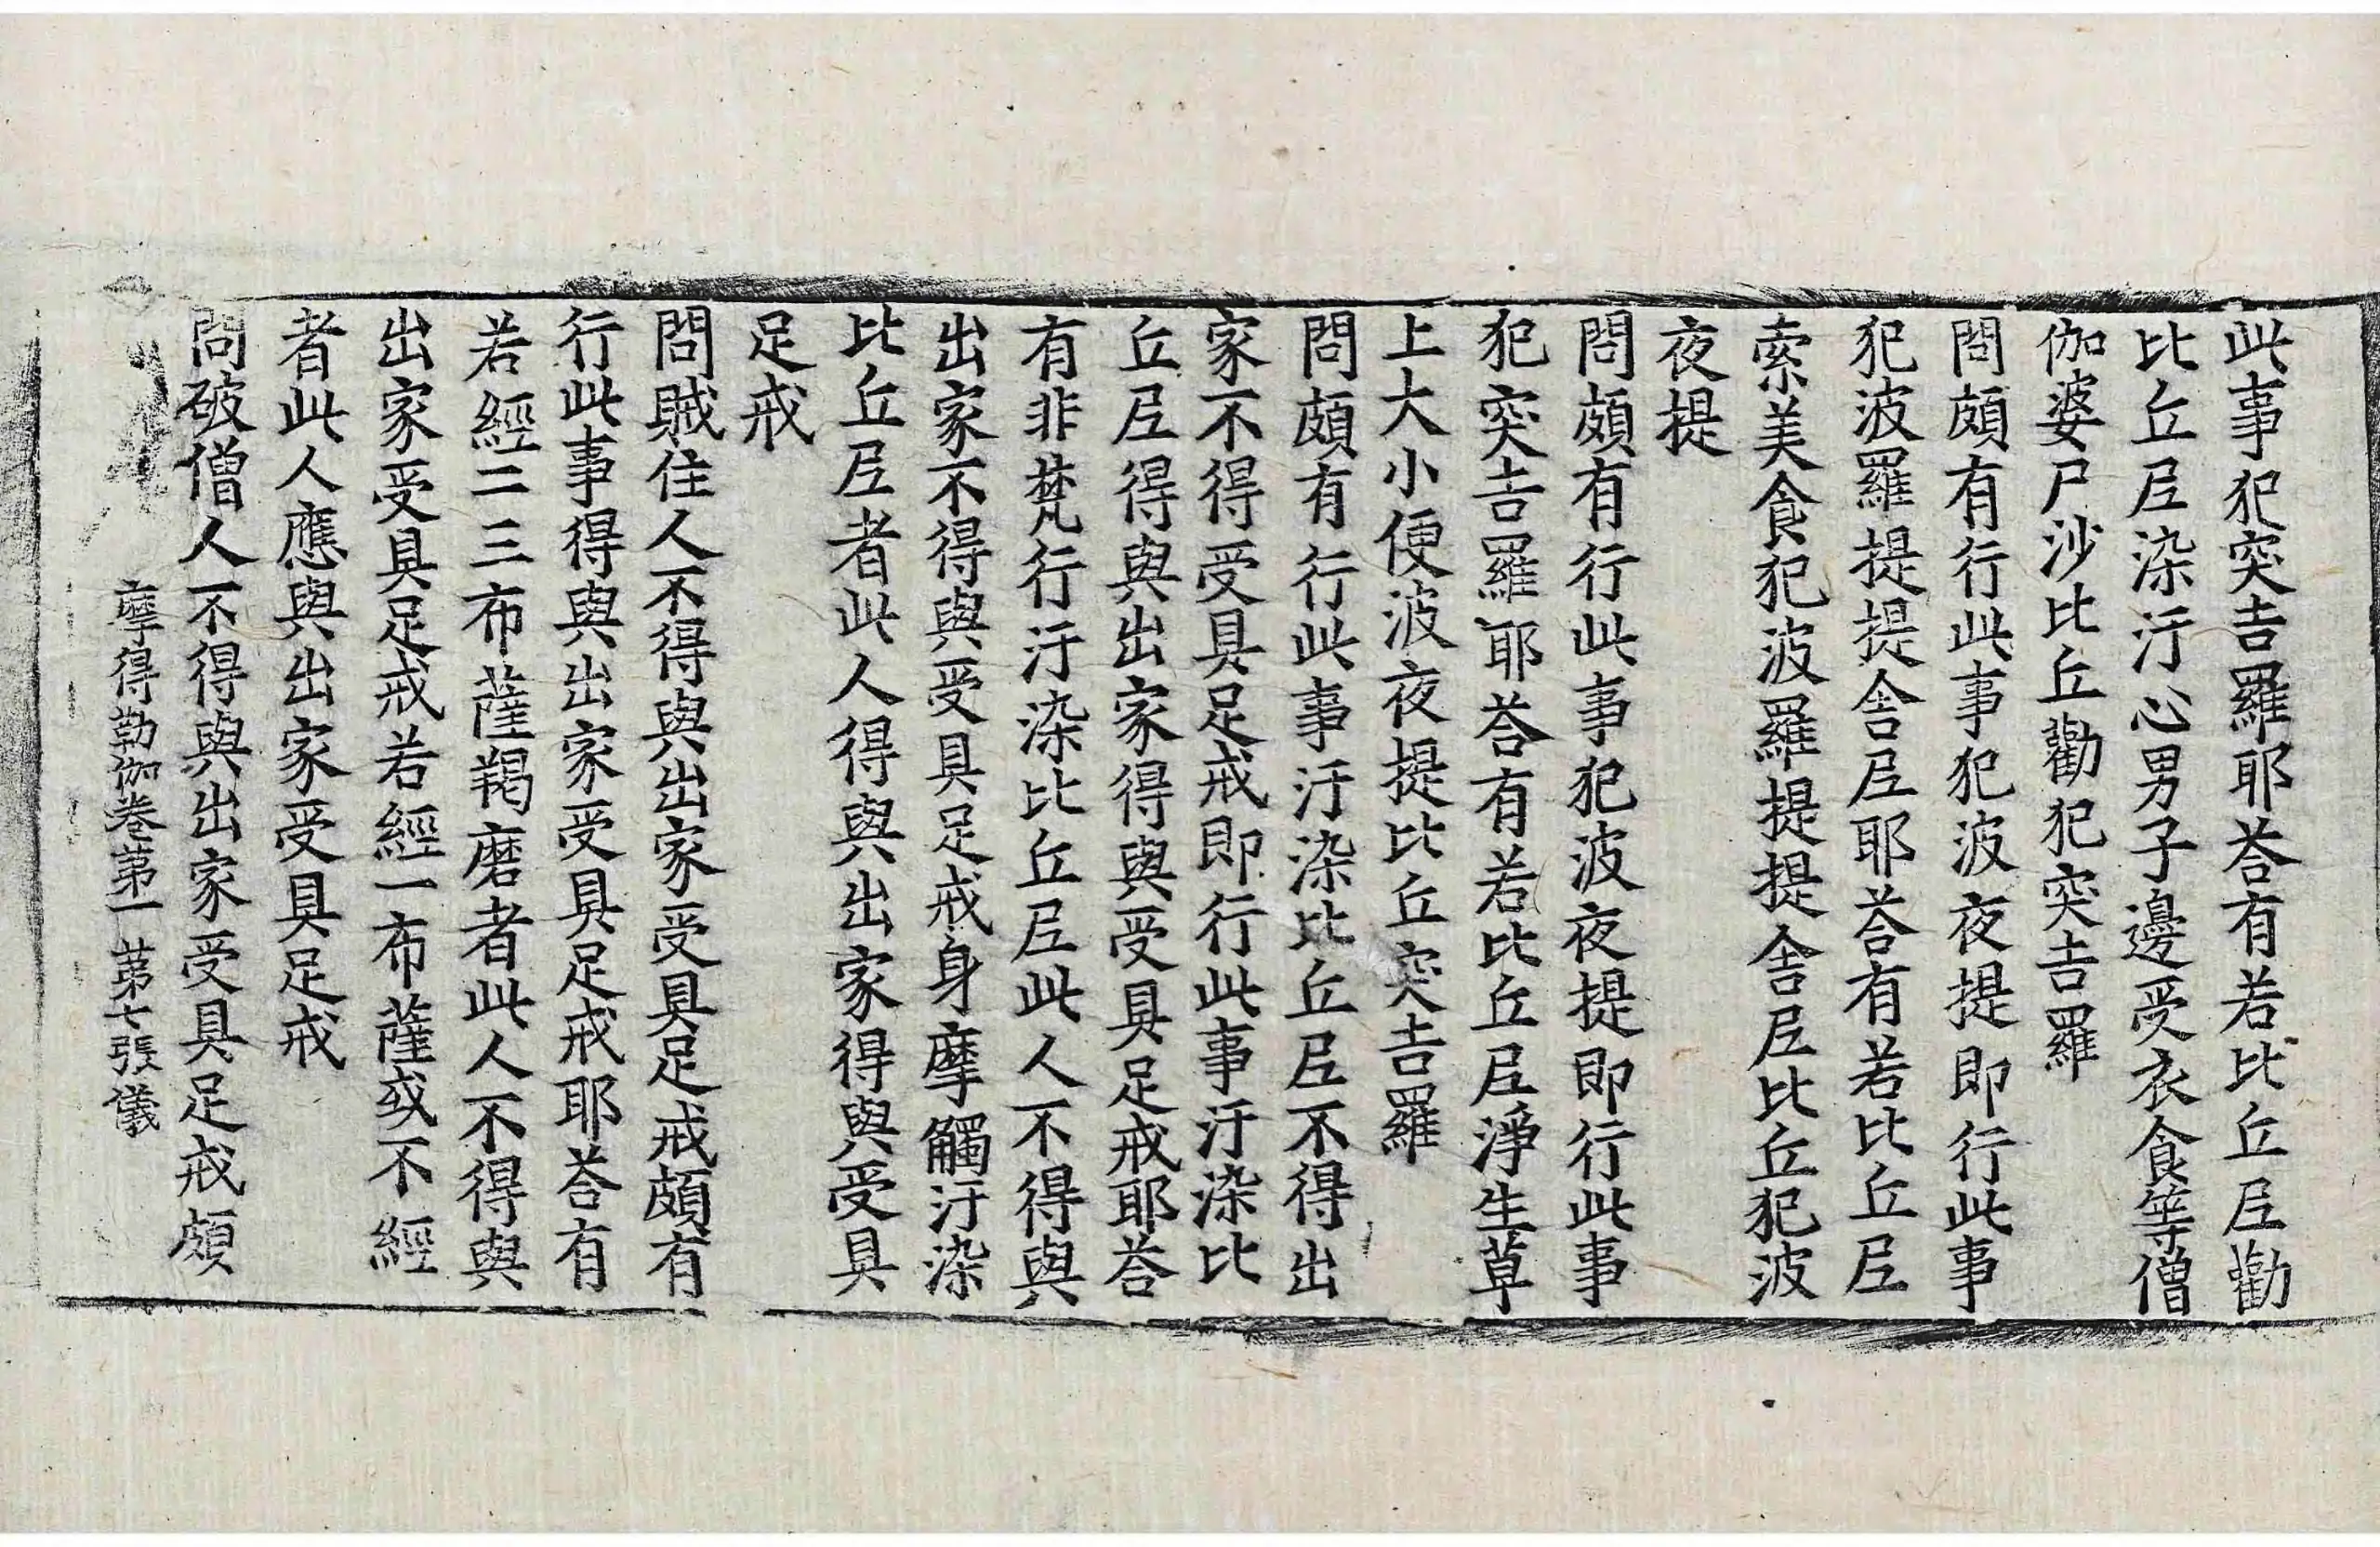 此事犯突吉羅耶荅有若比丘尼勸
比丘尼染汙心男子邊受衣食等僧
伽婆尸沙比丘勸犯突吉羅
問頗有行此事犯波夜提即行此事
犯波羅提提舍尼耶荅有若比丘尼
索美食犯波羅提提舍尼比丘犯波
夜提
問頗有行此事犯波夜提即行此事
犯突吉羅耶荅有若比丘尼淨生草
上大小便波夜提比丘突吉羅
問頗有行此事汙染比丘尼不得出
家不得受具足戒即行此事汙染比
丘尼得與出家得與受具足戒耶荅
有非梵行汙染比丘尼此人不得與
出家不得與受具足戒身摩觸汙染
比丘尼者此人得與出家得與受具
足戒
問賊住人不得與出家受具足戒頗有
行此事得與出家受具足戒耶荅有
若經二三布薩羯磨者此人不得與
出家受具足戒若經一布薩或不經
者此人應與出家受具足戒
問破僧人不得與出家受具足戒頗
摩得勒伽卷第一 第七張 儀